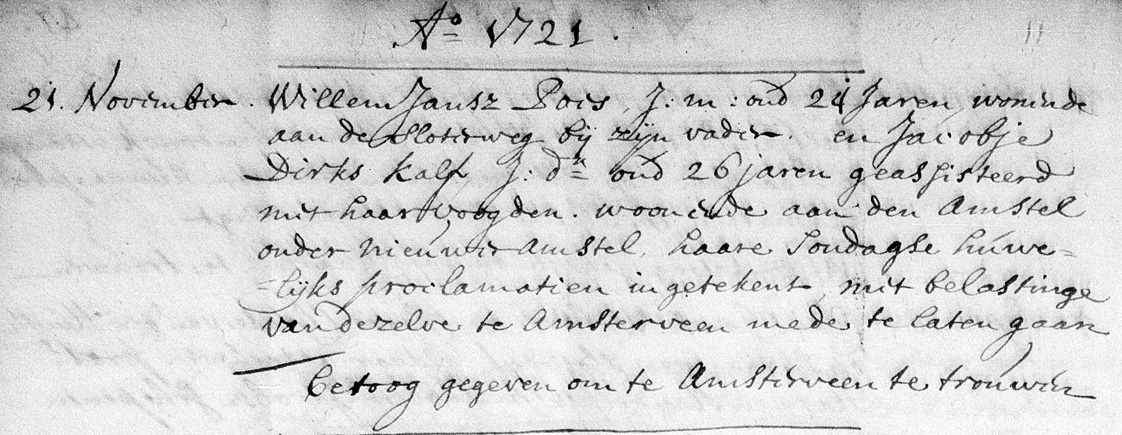 Ao 1721.
21. November. Willem Jansz Pois, J: m: oud 24 Jaren, wonende
aan de Sloterweg bij zijn vader. en Jacobje
Dirks Kalf, J: dr oud 26 jaren geassisteerd
met haar voogden. woonende aan den Amstel
onder nieuwer Amstel, haare Sondagse huwe=
=lijks proclamatien ingetekent, met belastinge
van dezelve te Amsterveen mede te laten gaan
betoog gegeven om te Amsterveen te trouwen